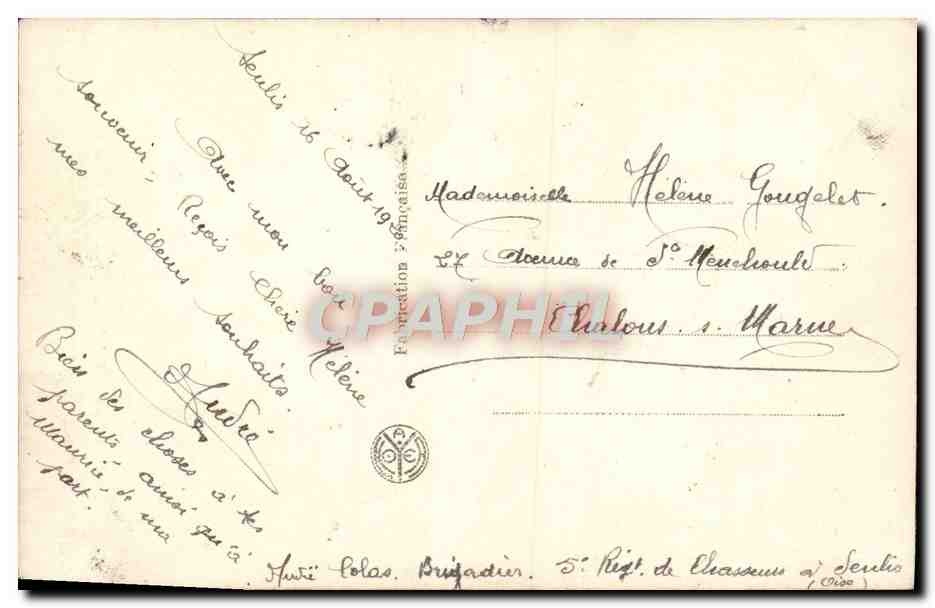 Senlis 16 Août 19
Avec mon bon
souvenir,
Reçois chère Hélène
mes meilleurs souhaits.
André
Bien des choses à tes
parents ainsi qu'à
Maurice de ma
part.
Fabrication Française
Mademoiselle Hélène Gougelet.
27 Avenue de Ste Menehould
Chalons. s. Marne
CPAPHIL
André Colas. Brigadier. 5e Régt. de Chasseurs à Senlis
(Oise)